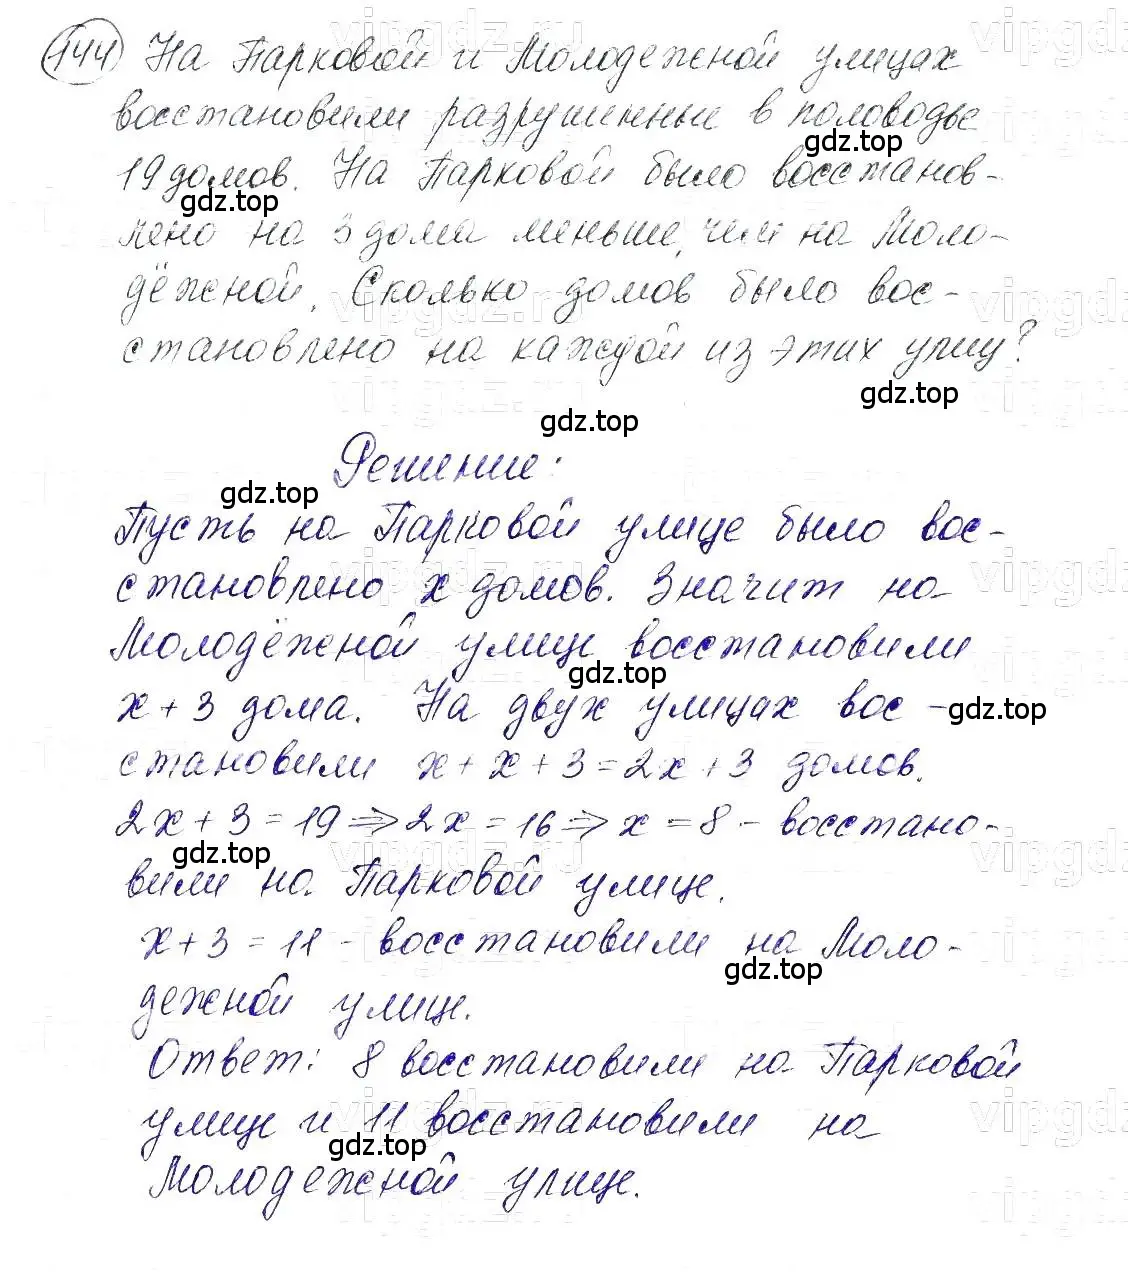 144 На Парковой и Молодежной улицах
восстановили разрушенные в половодье
19 домов. На Парковой было восстанов-
лено на 3 дома меньше, чем на Моло-
дёжной. Сколько домов было вос-
становлено на каждой из этих улиц?
Решение:
Пусть на Парковой улице было вос-
становлено x домов. Значит на
Молодёжной улице восстановили
x + 3 дома. На двух улицах вос-
становили x + x + 3 = 2x + 3 домов.
2x + 3 = 19 => 2x = 16 => x = 8 - восстано-
вили на Парковой улице.
x + 3 = 11 - восстановили на Моло-
дежной улице.
Ответ: 8 восстановили на Парковой
улице и 11 восстановили на
Молодежной улице.
gdz.top
gdz.top
gdz.top
gdz.top
gdz.top
gdz.top
gdz.top
gdz.top
gdz.top
gdz.top
vipgdz.ru
vipgdz.ru
vipgdz.ru
vipgdz.ru